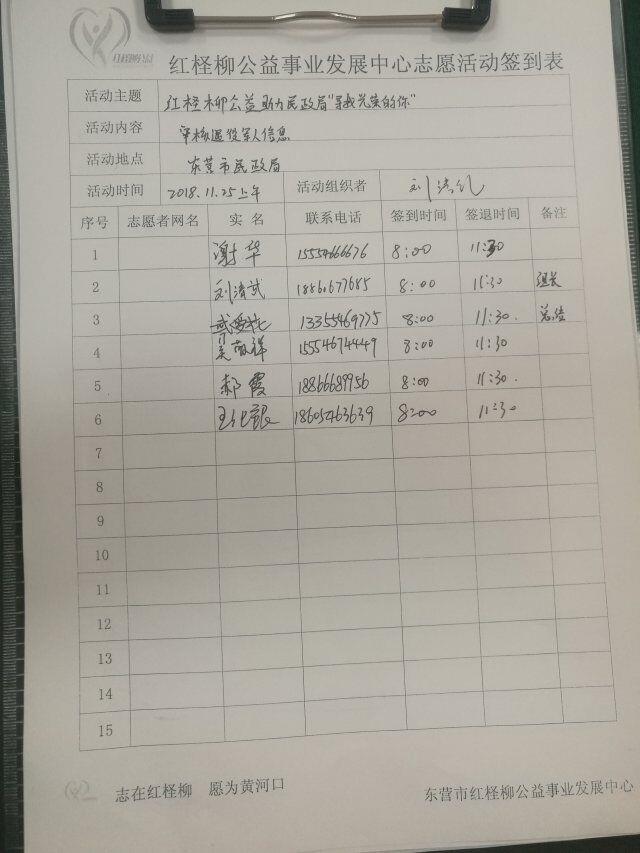 红柽柳公益
红柽柳公益事业发展中心志愿活动签到表
活动主题 红柽柳公益助力民政局"寻找光荣的你"
活动内容 审核退役军人信息
活动地点 东营市民政局
活动时间 2018.11.25上午 活动组织者 刘
序号 志愿者网名 实 名 联系电话 签到时间 签退时间 备注
1 谢华 15554666676 8:00 11:30
2 刘清武 18860677685 8:00 11:30 组长
3 13355469775 8:00 11:30. 总结
4 吴敬祥 15554674449 8:00 11:30
5 郝霞 18866689956 8:00 11:30.
6 王 银 18605463639 8:00 11:30
7
8
9
10
11
12
13
14
15
志在红柽柳 愿为黄河口
东营市红柽柳公益事业发展中心